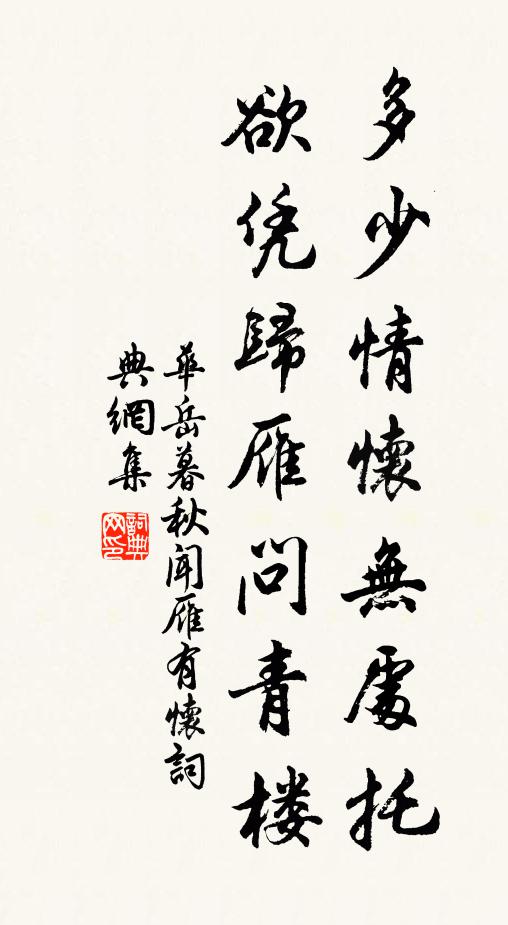 多少情懷無處托
欲凭歸雁問青楼
華岳暮秋闻雁有懷詞
典網集
詞典
网印